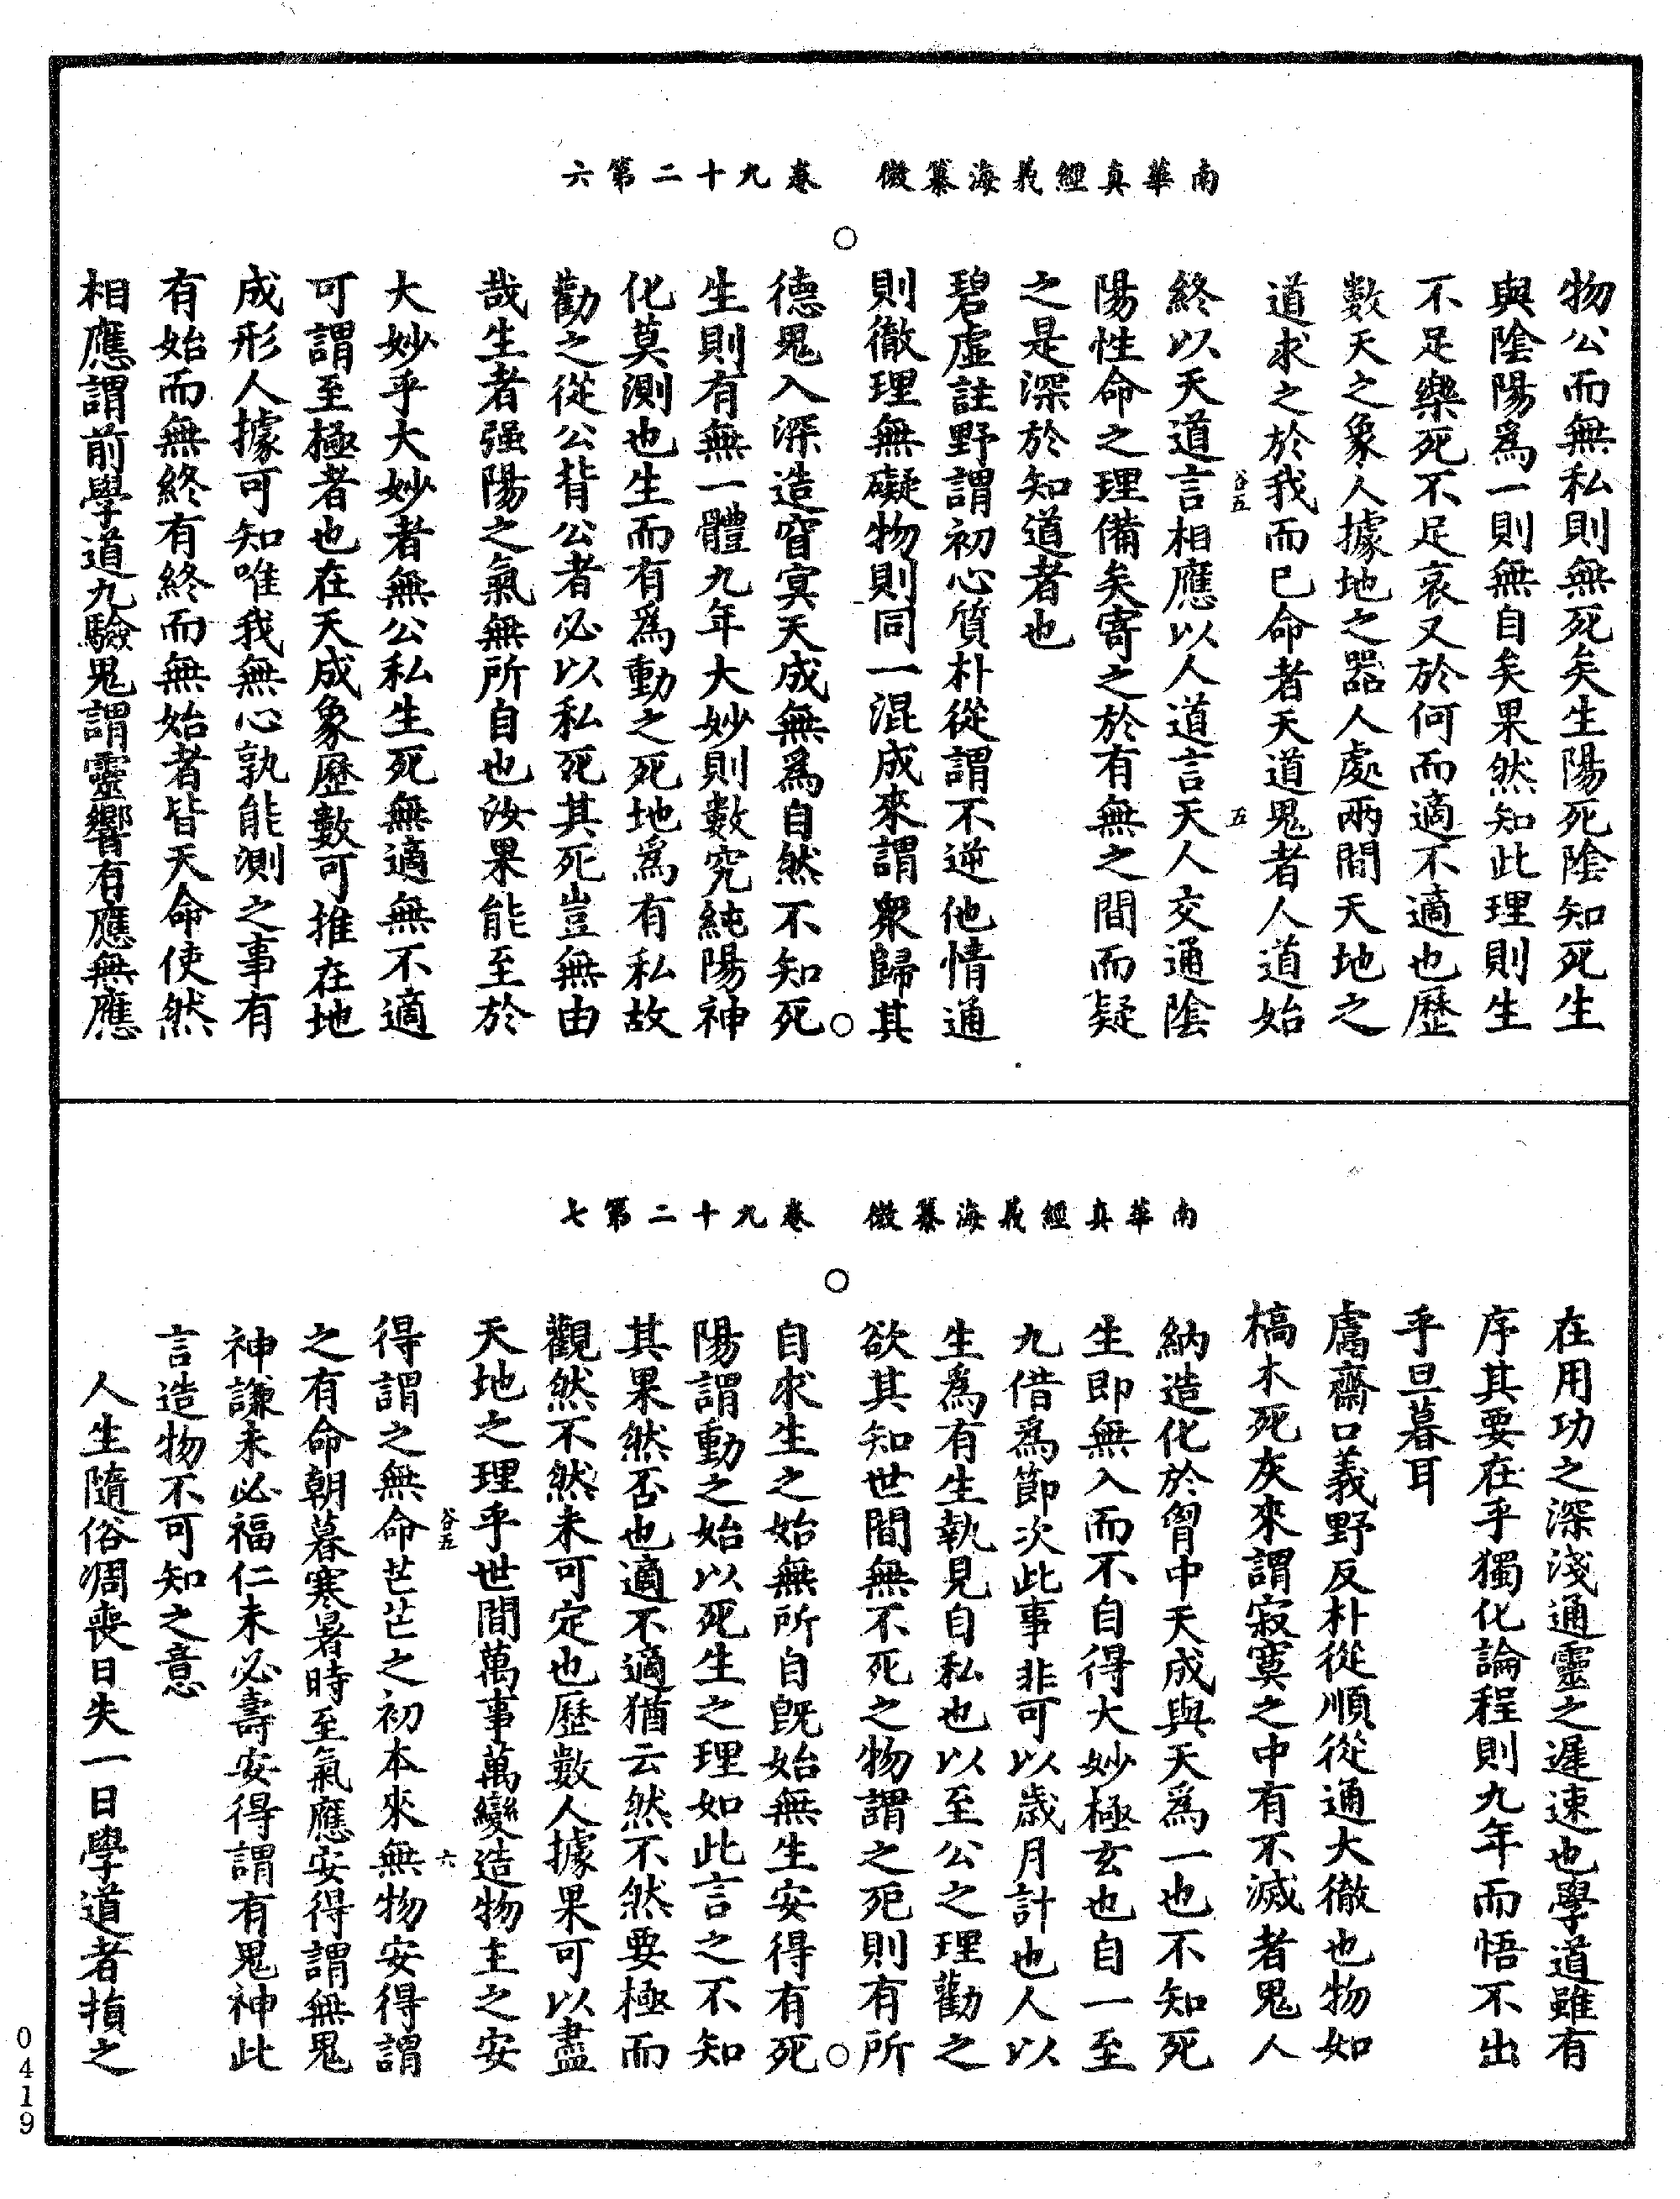 南華真經義海纂微　卷九十二第六
物公而無私則無死矣生陽死陰知死生
與陰陽爲一則無自矣果然知此理則生
不足樂死不足哀又於何而適不適也歷
數天之象人據地之器人處兩間天地之
道求之於我而已命者天道鬼者人道始
谷五
五
終以天道言相應以人道言天人交通陰
陽性命之理備矣寄之於有無之間而疑
之是深於知道者也
碧虛註野謂初心質朴從謂不逆他情通
則徹理無礙物則同一混成來謂衆歸其
德鬼入深造窅冥天成無爲自然不知死
生則有無一體九年大妙則數究純陽神
化莫測也生而有爲動之死地爲有私故
勸之從公背公者必以私死其死豈無由
哉生者强陽之氣無所自也汝果能至於
大妙乎大妙者無公私生死無適無不適
可謂至極者也在天成象歷數可推在地
成形人據可知唯我無心孰能測之事有
有始而無終有終而無始者皆天命使然
相應謂前學道九驗鬼謂靈響有應無應
南華真經義海纂微　卷九十二第七
在用功之深淺通靈之遲速也學道雖有
序其要在乎獨化論程則九年而悟不出
乎旦暮耳
鬳齋口義野反朴從順從通大徹也物如
槁木死灰來謂寂寞之中有不滅者鬼人
納造化於胷中天成與天爲一也不知死
生即無入而不自得大妙極玄也自一至
九借爲節次此事非可以歲月計也人以
生爲有生執見自私也以至公之理勸之
欲其知世間無不死之物謂之死則有所
自求生之始無所自旣始無生安得有死
陽謂動之始以死生之理如此言之不知
其果然否也適不適猶云然不然要極而
觀然不然未可定也歷數人據果可以盡
天地之理乎世間萬事萬變造物主之安
谷五
六
得謂之無命芒芒之初本來無物安得謂
之有命朝暮寒暑時至氣應安得謂無鬼
神謙未必福仁未必壽安得謂有鬼神此
言造物不可知之意
人生隨俗凋喪日失一日學道者損之
0419